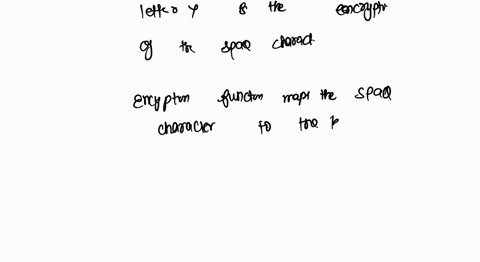 letter y is the encryptn
of the space charact
Encryption function maps the space
character to the